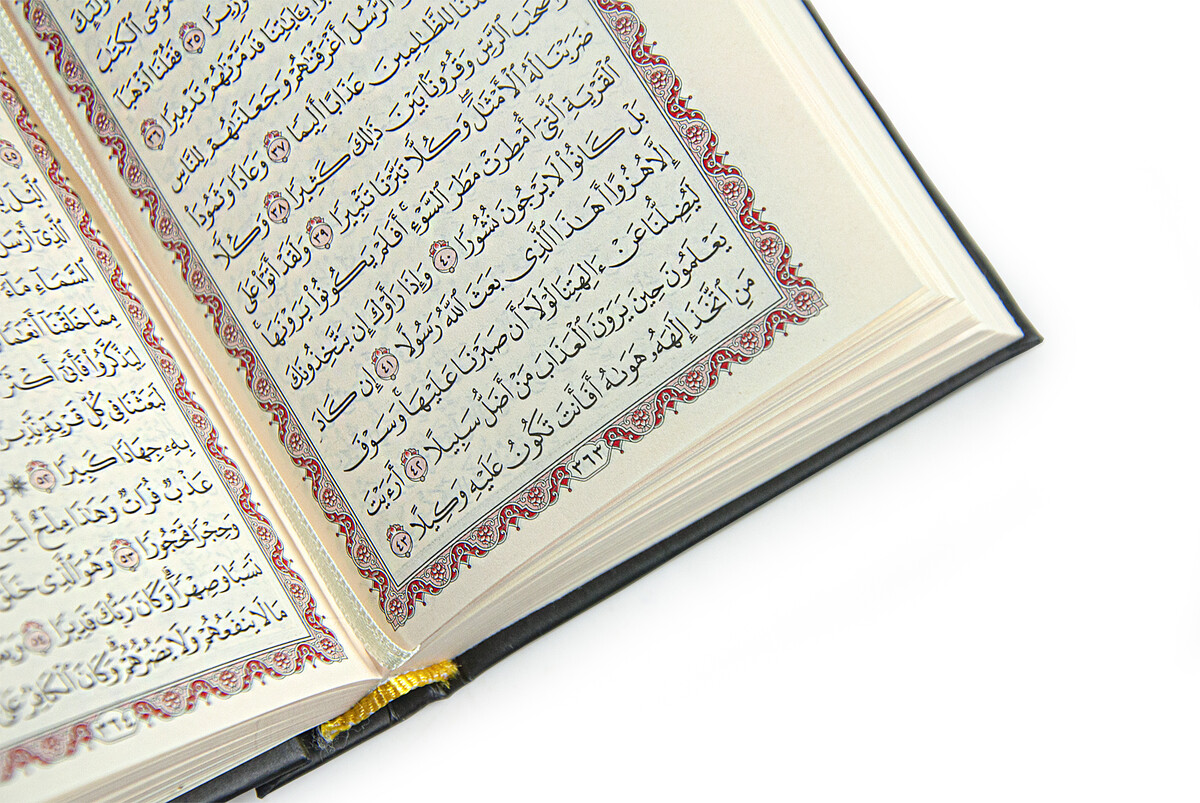 مُوسَى ٱلْكِتَٰبَ
وَزِيرًا ٣٥ فَقُلْنَا ٱذْهَبَآ
بِـَٔايَٰتِنَا فَدَمَّرْنَٰهُمْ تَدْمِيرًا ٣٦
ٱلرُّسُلَ أَغْرَقْنَٰهُمْ وَجَعَلْنَٰهُمْ لِلنَّاسِ
لِلظَّٰلِمِينَ عَذَابًا أَلِيمًا ٣٧ وَعَادًا وَثَمُودَا۟
وَأَصْحَٰبَ ٱلرَّسِّ وَقُرُونًۢا بَيْنَ ذَٰلِكَ كَثِيرًا ٣٨ وَكُلًّا
ضَرَبْنَا لَهُ ٱلْأَمْثَٰلَ ۖ وَكُلًّا تَبَّرْنَا تَتْبِيرًا ٣٩ وَلَقَدْ أَتَوْا۟ عَلَى
ٱلْقَرْيَةِ ٱلَّتِىٓ أُمْطِرَتْ مَطَرَ ٱلسَّوْءِ ۚ أَفَلَمْ يَكُونُوا۟ يَرَوْنَهَا ۚ
بَلْ كَانُوا۟ لَا يَرْجُونَ نُشُورًا ٤٠ وَإِذَا رَأَوْكَ إِن يَتَّخِذُونَكَ
إِلَّا هُزُوًا أَهَٰذَا ٱلَّذِى بَعَثَ ٱللَّهُ رَسُولًا ٤١ إِن كَادَ
لَيُضِلُّنَا عَنْ ءَالِهَتِنَا لَوْلَآ أَن صَبَرْنَا عَلَيْهَا ۚ وَسَوْفَ
يَعْلَمُونَ حِينَ يَرَوْنَ ٱلْعَذَابَ مَنْ أَضَلُّ سَبِيلًا ٤٢ أَرَءَيْتَ
مَنِ ٱتَّخَذَ إِلَٰهَهُۥ هَوَىٰهُ أَفَأَنتَ تَكُونُ عَلَيْهِ وَكِيلًا ٤٣
٣٦٣
٤٥
ٱلَّيْلَ
ٱلَّذِىٓ أَرْسَلَ
ٱلسَّمَآءِ مَآءً
مِمَّا خَلَقْنَآ أَنْعَٰمًا
لِيَذَّكَّرُوا۟ فَأَبَىٰٓ أَكْثَرُ
لَبَعَثْنَا فِى كُلِّ قَرْيَةٍ نَّذِيرًا
بِهِۦ جِهَادًا كَبِيرًا ٥٢ ۞
عَذْبٌ فُرَاتٌ وَهَٰذَا مِلْحٌ
وَحِجْرًا مَّحْجُورًا ٥٣ وَهُوَ ٱلَّذِى خَلَقَ
نَسَبًا وَصِهْرًا ۗ وَكَانَ رَبُّكَ قَدِيرًا ٥٤
مَا لَا يَنفَعُهُمْ وَلَا يَضُرُّهُمْ ۗ وَكَانَ ٱلْكَافِرُ عَلَىٰ
٣٦٤